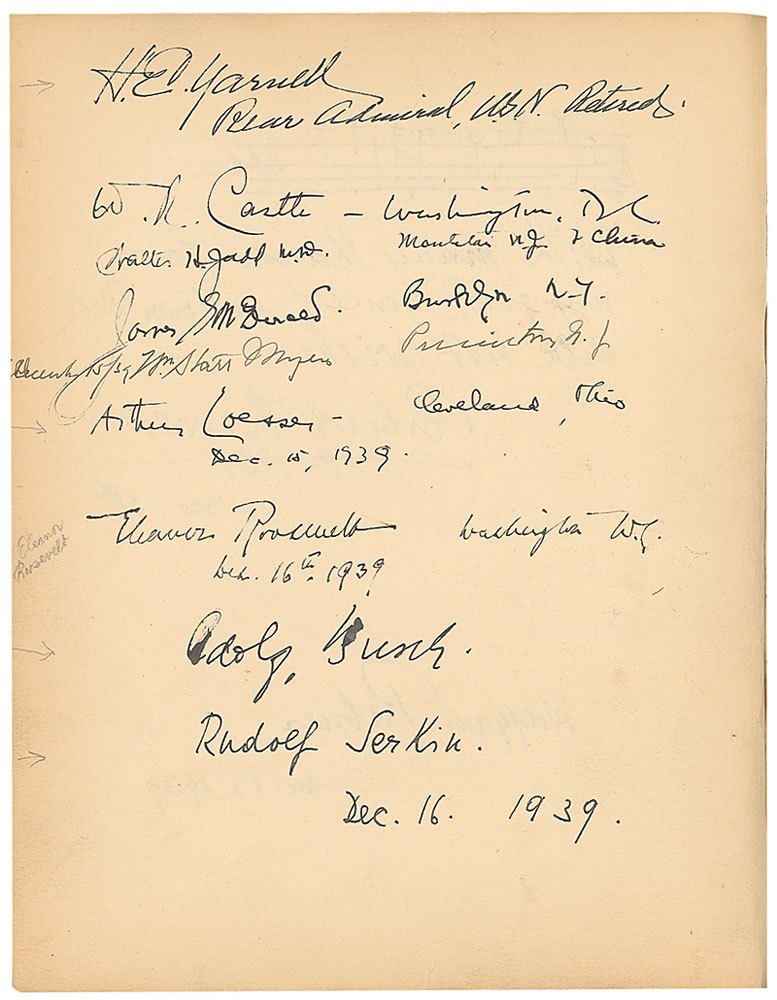 H. E. Yarnell
Rear Admiral, U.S.N. Retired.
W. R. Castle – Washington, D.C.
Walter H. Judd M.D. Montclair N.J. & China
James G. McDonald. Brooklyn N.Y.
December 15/39 Wm. Starr Myers Princeton N.J.
Arthur Loesser – Cleveland, Ohio
Dec. 15, 1939.
Eleanor Roosevelt Washington D.C.
Eleanor
Roosevelt
Dec. 16th 1939
Adolf Busch.
Rudolf Serkin.
Dec. 16. 1939.